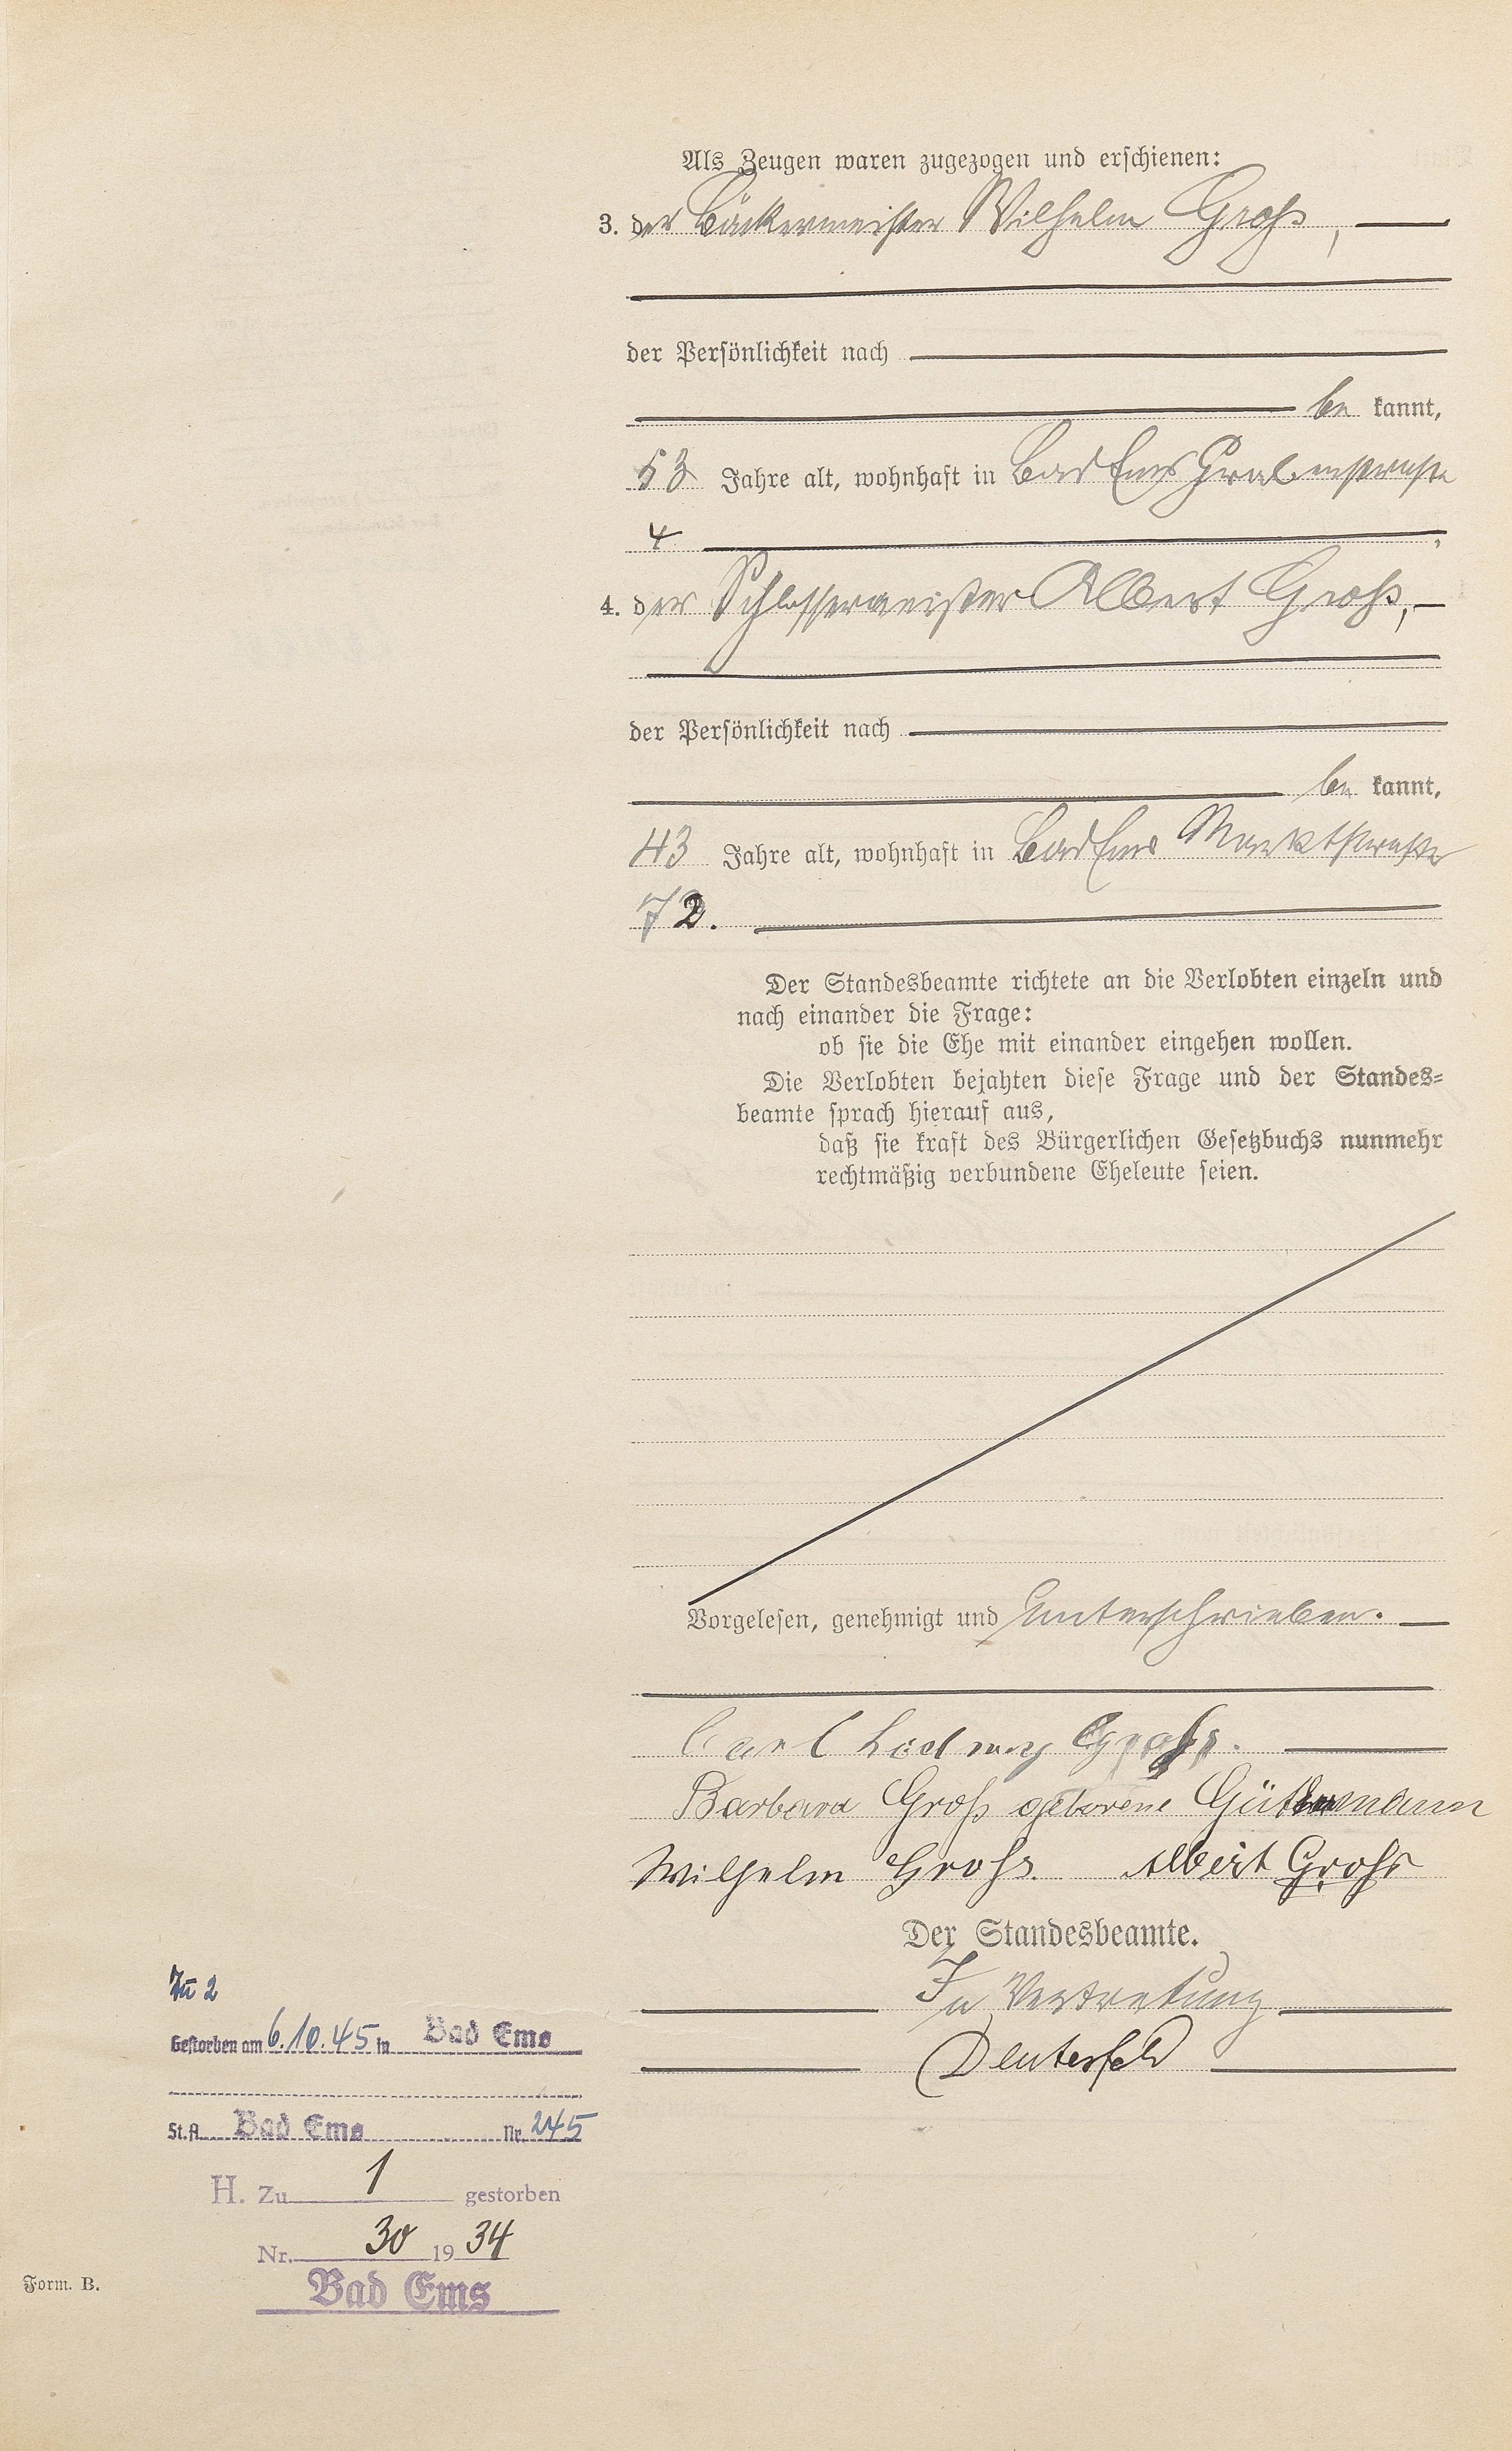 Als Zeugen waren zugezogen und erschienen:
3. der Bäckermeister Wilhelm Groß,
der Persönlichkeit nach
be kannt,
53 Jahre alt, wohnhaft in Bad Ems Grabenstraße
4,
4. der Schlossermeister Albert Groß,
der Persönlichkeit nach
be kannt,
43 Jahre alt, wohnhaft in Bad Ems Marktstraße
72.
Der Standesbeamte richtete an die Verlobten einzeln und
nach einander die Frage:
ob sie die Ehe mit einander eingehen wollen.
Die Verlobten bejahten diese Frage und der Standes-
beamte sprach hierauf aus,
daß sie kraft des Bürgerlichen Gesetzbuchs nunmehr
rechtmäßig verbundene Eheleute seien.
Vorgelesen, genehmigt und unterschrieben.
Carl Ludwig Groß.
Barbara Groß geborene Güttermann
Wilhelm Groß. Albert Groß
Der Standesbeamte.
In Vertretung
Deutesfeld
Zu 2
Gestorben am 6.10.45 in Bad Ems
St.A. Bad Ems Nr. 245
H. Zu 1 gestorben
Nr. 30 1934
Bad Ems
Form. B.